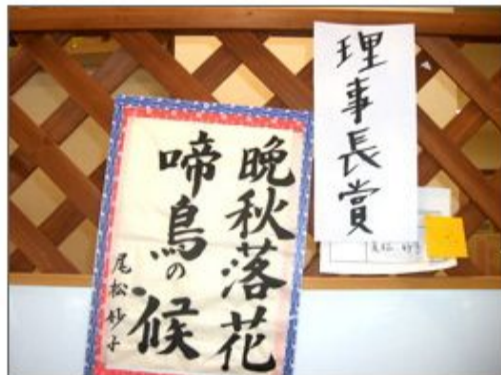 理事長賞
晩秋落花
啼鳥の候
尾松妙子